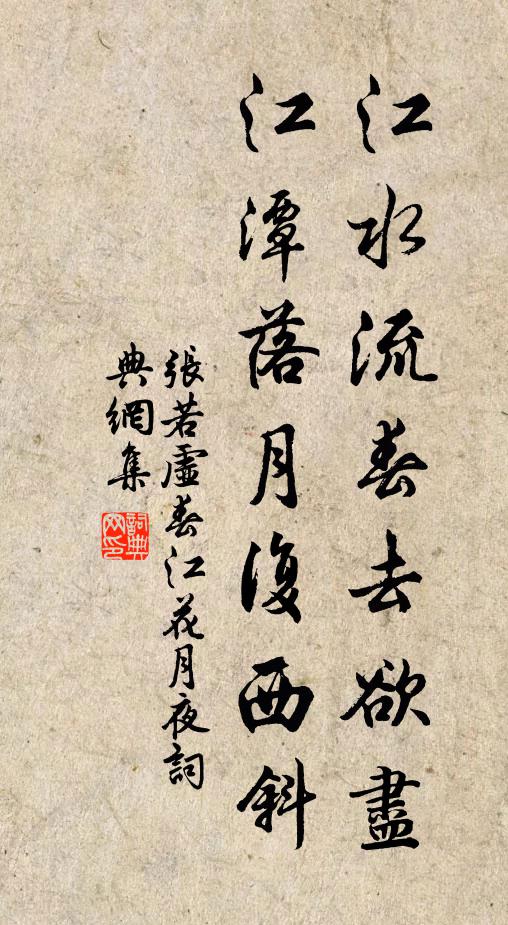 江水流春去欲盡
江潭落月復西斜
張若虛春江花月夜詞
典網集
詞典網印